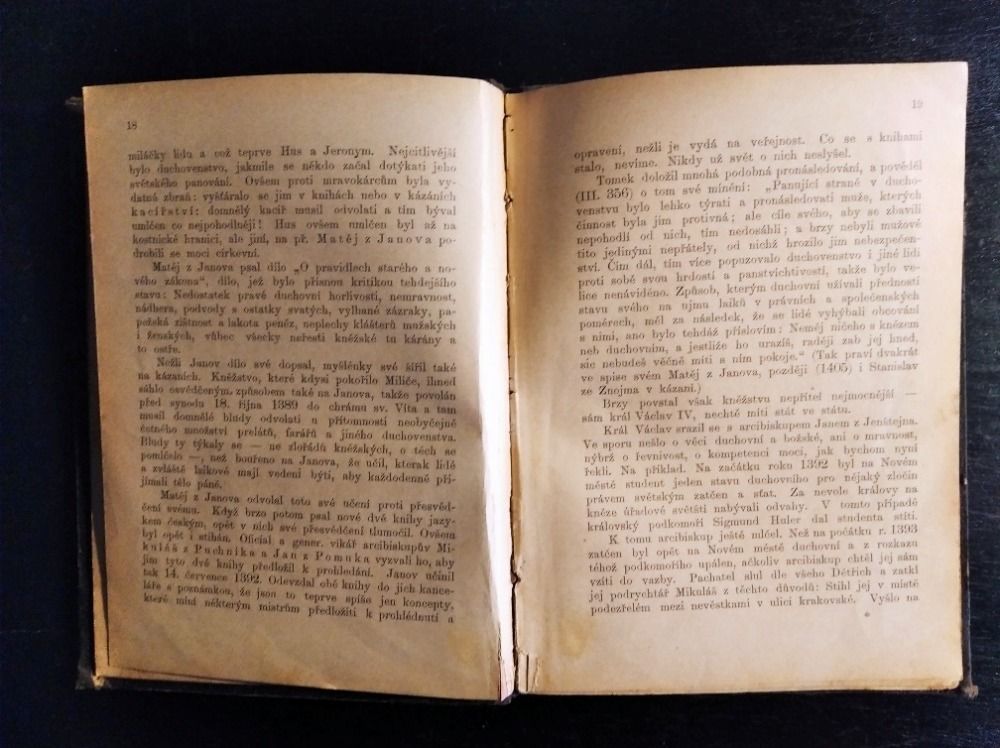 18
miláčky lidu a což teprve Hus a Jeronym. Nejcitlivější
bylo duchovenstvo, jakmile se někdo začal dotýkati jeho
světského panování. Ovšem proti mravokárcům byla vy-
datná zbraň: vyšťáralo se jim v knihách nebo v kázáních
kacířství: domnělý kacíř musil odvolati a tím býval
umlčen co nejpohodlněji! Hus ovšem umlčen byl až na
kostnické hranici, ale jiní, na př. Matěj z Janova po-
drobili se moci církevní.
Matěj z Janova psal dílo „O pravidlech starého a no-
vého zákona“, dílo, jež bylo přísnou kritikou tehdejšího
stavu: Nedostatek pravé duchovní horlivosti, nemravnost,
nádhera, podvody s ostatky svatých, vylhané zázraky, pa-
pežská zištnost a lakota peněz, neplechy klášterů mužských
i ženských, vůbec všecky neřesti kněžské tu kárány a
to ostře.
Nežli Janov dílo své dopsal, myšlénky své šířil také
na kázaních. Kněžstvo, které kdysi pokořilo Milíče, ihned
sáhlo osvědčeným způsobem také na Janova, takže povolán
před synodu 18. října 1389 do chrámu sv. Víta a tam
musil domnělé bludy odvolati u přítomnosti neobyčejně
četného množství prelátů, farářů a jiného duchovenstva.
Bludy ty týkaly se — ne zlořádů kněžských, o těch se
pomlčelo —, než bouřeno na Janova, že učil, kterak lidé
a zvláště laikové mají vedeni býti, aby každodenně při-
jímali tělo páně.
Matěj z Janova odvolal toto své učení proti přesvěd-
čení svému. Když brzo potom psal nové dvě knihy jazy-
kem českým, opět v nich své přesvědčení tlumočil. Ovšem
byl opět i stíhán. Oficial a gener. vikář arcibiskupův Mi-
kuláš z Puchníka a Jan z Pomuka vyzvali ho, aby
jim tyto dvě knihy předložil k prohledání. Janov učinil
tak 14. července 1392. Odevzdal obě knihy do jich kance-
láře s poznámkou, že jsou to teprve spíše jen koncepty,
které míní některým mistrům předložiti k prohlédnutí a
19
opravení, nežli je vydá na veřejnost. Co se s knihami
stalo, nevíme. Nikdy už svět o nich neslyšel.
Tomek doložil mnohá podobná pronásledování, a pověděl
(III. 356) o tom své mínění: „Panující straně v ducho-
venstvu bylo lehko týrati a pronásledovati muže, kterých
činnost byla jim protivná; ale cíle svého, aby se zbavili
nepohodlí od nich, tím nedosáhli; a brzy nebyli mužové
tito jedinými nepřátely, od nichž hrozilo jim nebezpečen-
ství. Čím dál, tím více popuzovalo duchovenstvo i jiné lidi
proti sobě svou hrdostí a panstvíchtivostí, takže bylo ve-
lice nenáviděno. Způsob, kterým duchovní užívali přednosti
stavu svého na ujmu laiků v právních a společenských
poměrech, měl za následek, že se lidé vyhýbali obcování
s nimi, ano bylo tehdáž příslovím: Neměj ničeho s knězem
neb duchovním, a jestliže ho urazíš, raději zab jej hned,
sic nebudeš věčně míti s ním pokoje.“ (Tak praví dvakrát
ve spise svém Matěj z Janova, později (1405) i Stanislav
ze Znojma v kázaní.)
Brzy povstal však kněžstvu nepřítel nejmocnější —
sám král Václav IV, nechtě míti stát ve státu.
Král Václav srazil se s arcibiskupem Janem z Jenštejna.
Ve sporu nešlo o věci duchovní a božské, ani o mravnost,
nýbrž o řevnivost, o kompetenci moci, jak bychom nyní
řekli. Na příklad. Na začátku roku 1392 byl na Novém
městě student jeden stavu duchovního pro nějaký zločin
právem světským zatčen a sťat. Za nevole královy na
kněze úřadové světští nabývali odvahy. V tomto případě
královský podkomoří Sigmund Huler dal studenta stíti.
K tomu arcibiskup ještě mlčel. Než na počátku r. 1393
zatčen byl opět na Novém městě duchovní a z rozkazu
téhož podkomořího upálen, ačkoliv arcibiskup chtěl jej sám
vzíti do vazby. Pachatel slul dle všeho Dětřich a zatkl
jej podrychtář Mikuláš z těchto důvodů: Stihl jej v místě
podezřelém mezi nevěstkami v ulici krakovské. Vyšlo na